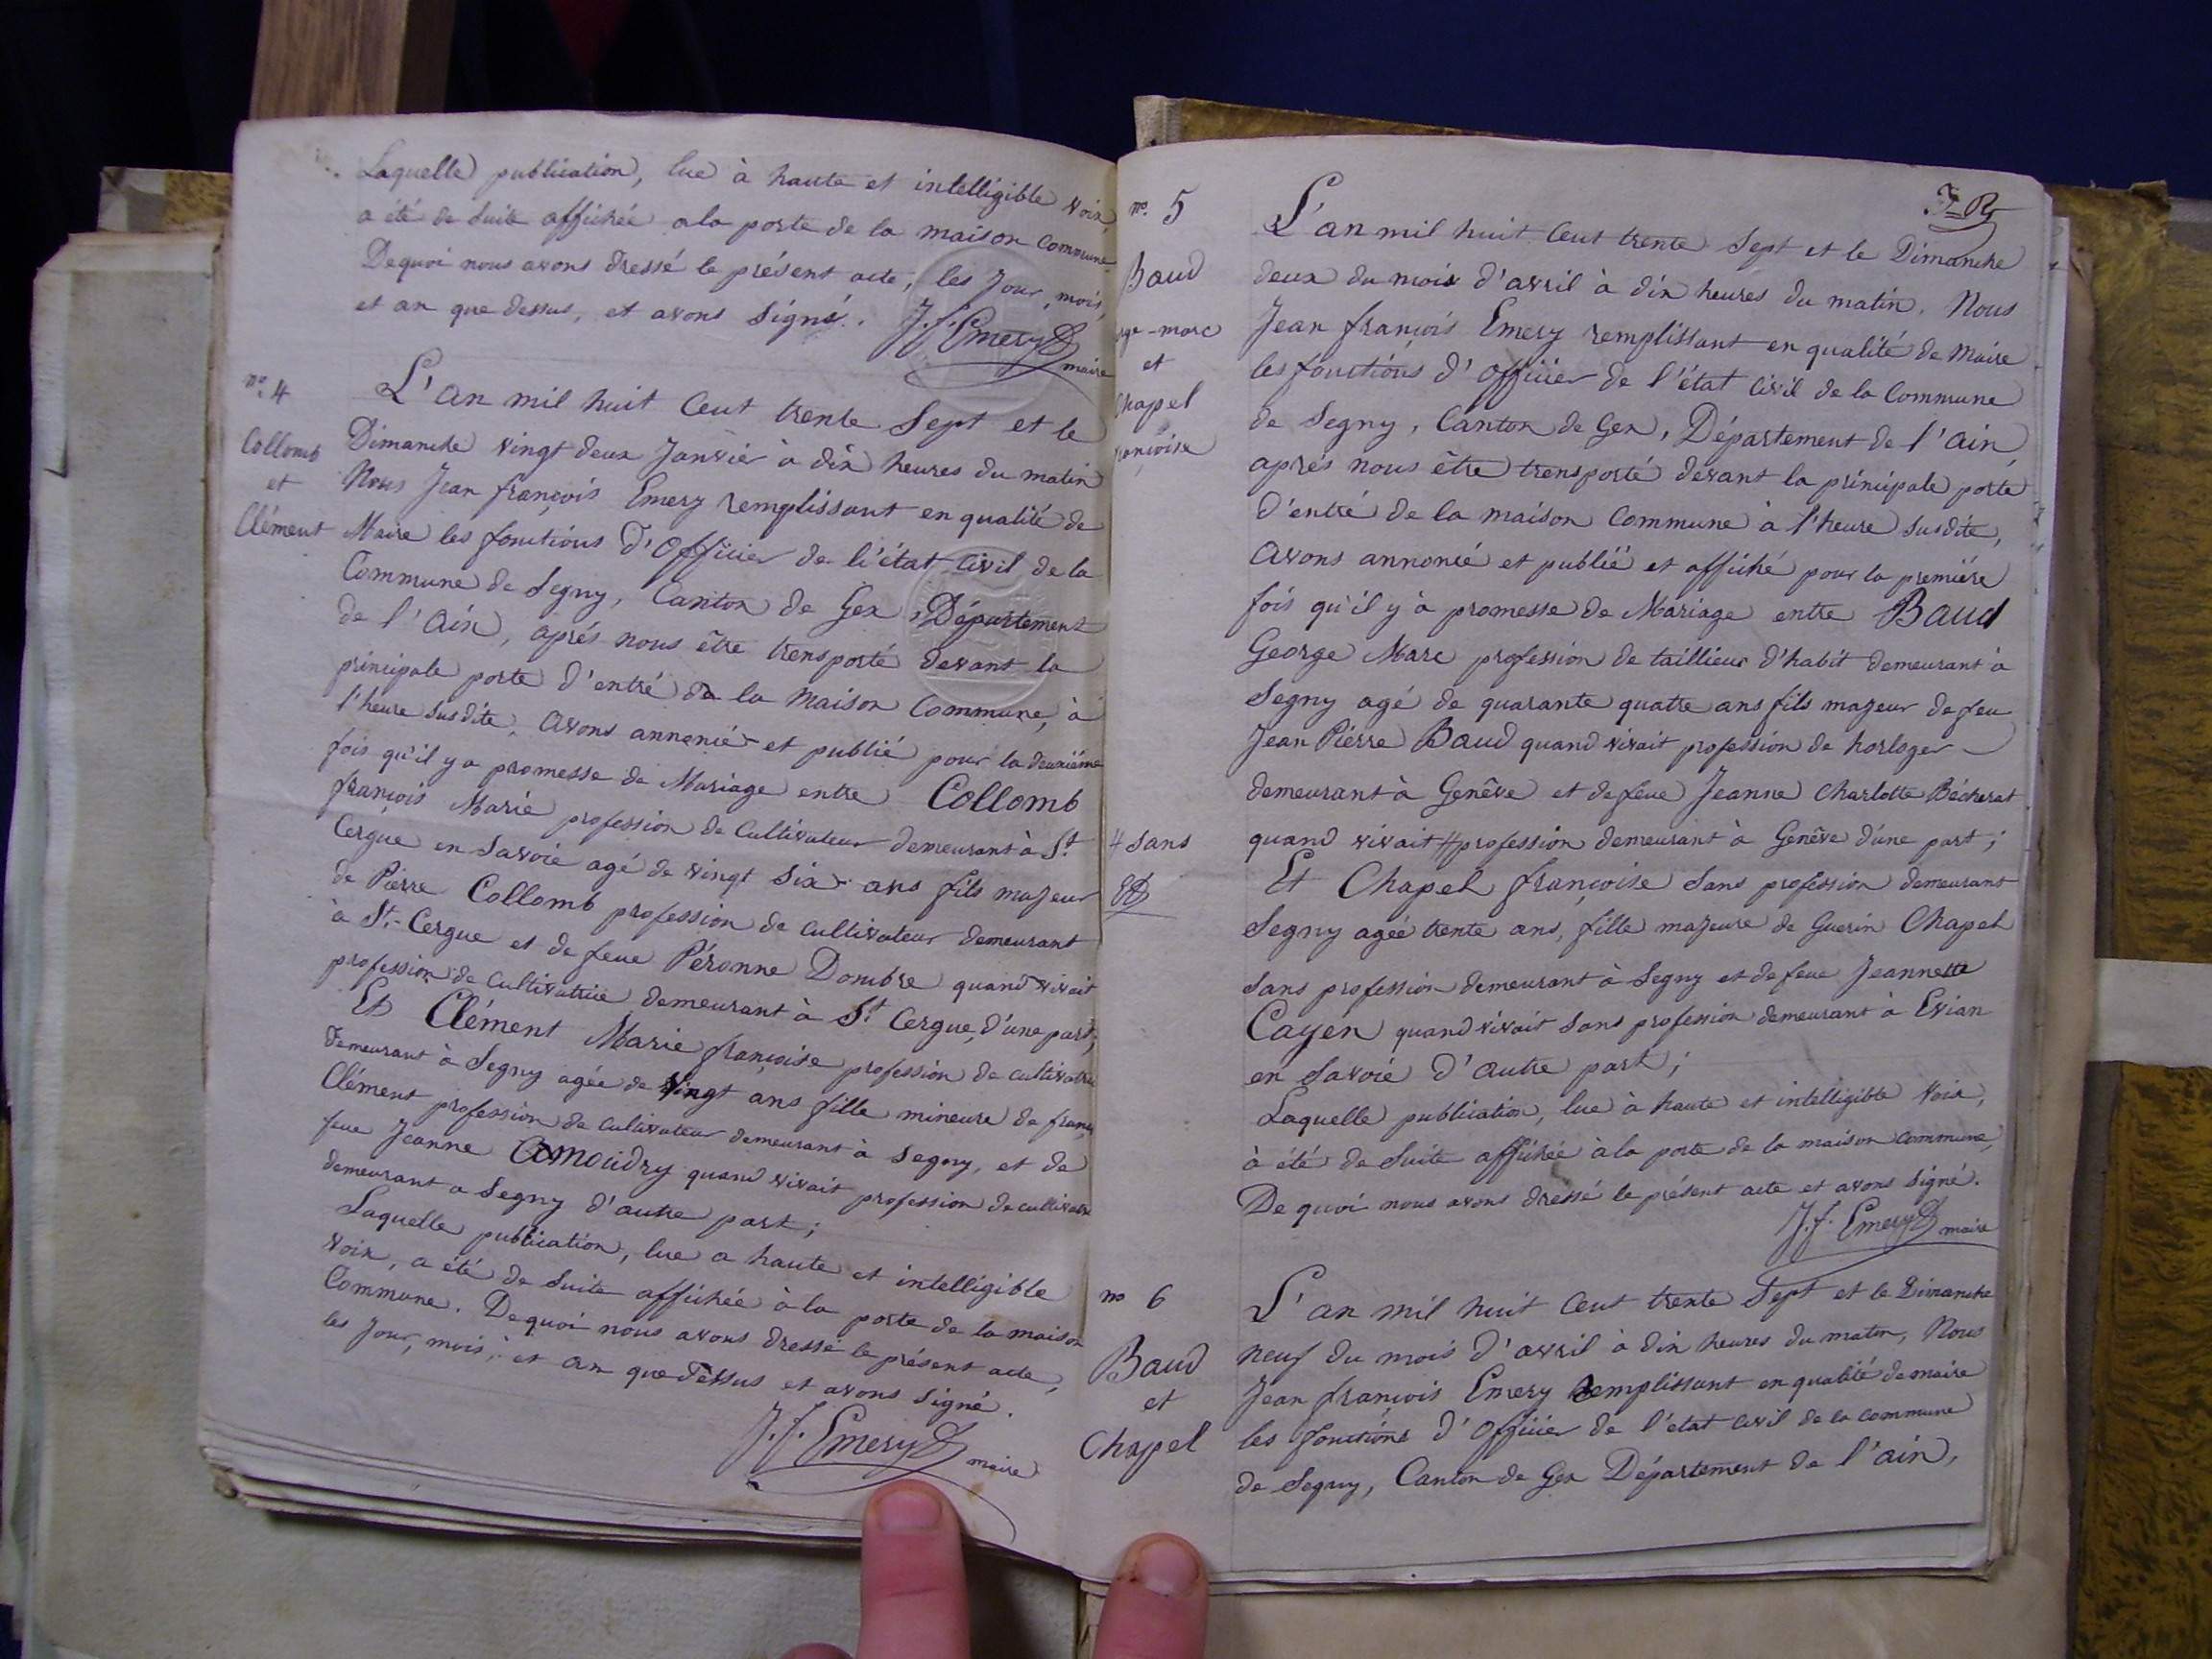 Laquelle publication, lue à haute et intelligible voix,
a été de suite affichée a la porte de la maison commune
De quoi nous avons dressé le présent acte, les jour, mois,
et an que dessus, et avons signé. J. f. Emery
maire
n° 4
Collomb
et
Clément
L'an mil huit cent trente sept et le
Dimanche vingt deux Janvier à dix heures du matin
Nous Jean françois Emery remplissant en qualité de
Maire les fonctions d'officier de l'état civil de la
Commune de Segny, Canton de Gex, Département
de l'Ain, aprés nous être transporté devant la
principale porte d'entré de la maison Commune, à
l'heure susdite, avons annoncé et publié pour la deuxième
fois qu'il y a promesse de Mariage entre Collomb
françois Marie profession de Cultivateur demeurant à St
Cergue en Savoie agé de vingt six ans fils majeur
de Pierre Collomb profession de cultivateur demeurant
à St-Cergue et de feue Péronne Dombre quand vivait
profession de cultivatrice demeurant à St Cergue, d'une part,
Et Clément Marie françoise profession de cultivatrice
demeurant à Segny agée de vingt ans fille mineure de
Clément profession de cultivateur demeurant à Segny, et de
feue Jeanne quand vivait profession de
demeurant a Segny d'autre part;
Laquelle publication, lue a haute et intelligible
voix, a été de suite affichée à la porte de la maison
Commune. De quoi nous avons dressé le présent acte,
les jour, mois, et an que dessus et avons signé.
J. f. Emery maire
n° 5
Baud
marc
et
Chapel
françoise
L'an mil huit cent trente sept et le Dimanche
deux du mois d'avril à dix heures du matin. Nous
Jean françois Emery remplissant en qualité de Maire
les fonctions d'officier de l'état civil de la Commune
de Segny, Canton de Gex, Département de l'ain,
aprés nous être transporté devant la principale porte
d'entré de la maison commune à l'heure susdite,
avons annoncé et publié et affiché pour la première
fois qu'il y à promesse de Mariage entre Baud
George Marc profession de taillieur d'habit demeurant à
Segny agé de quarante quatre ans fils majeur de feu
Jean Pierre Baud quand vivait profession de horloger
demeurant à Genêve et de feue Jeanne Charlotte Bécherat
quand vivait # profession demeurant à Genêve d'une part;
# sans
Et Chapel françoise sans profession demeurant
Segny agée trente ans, fille majeure de Guerin Chapel
sans profession demeurant à Segny et de feue Jeannette
Cayen quand vivait sans profession demeurant à Evian
en Savoie d'autre part;
Laquelle publication, lue à haute et intelligible voix,
à été de suite affichée à la porte de la maison commune,
De quoi nous avons dressé le présent acte et avons signé.
J. f. Emery maire
n° 6
Baud
et
Chapel
L'an mil huit cent trente sept et le Dimanche
neuf du mois d'avril à dix heures du matin, Nous
Jean françois Emery remplissant en qualité de maire
les fonctions d'officier de l'état civil de la commune
de Segny, Canton de Gex Département de l'ain,